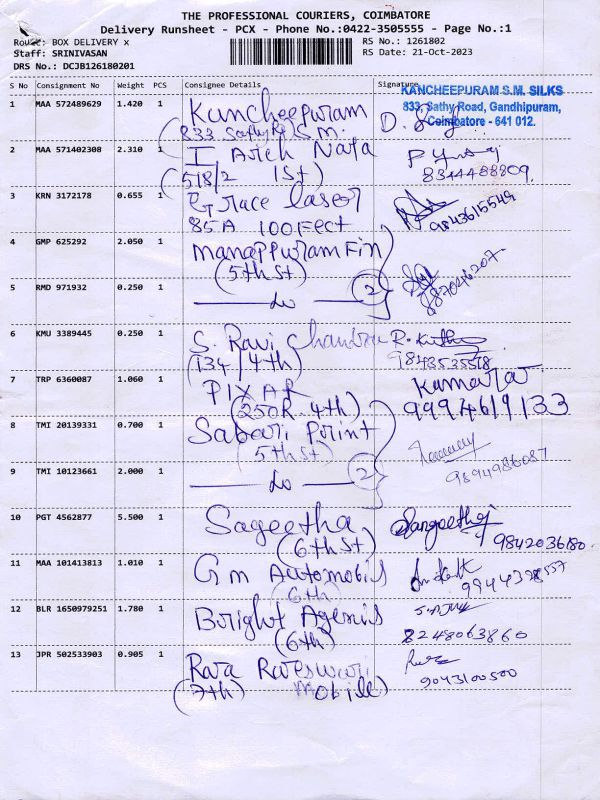 THE PROFESSIONAL COURIERS, COIMBATORE
Delivery Runsheet - PCX - Phone No.:0422-3505555 - Page No.:1
Route: BOX DELIVERY x
RS No.: 1261802
Staff: SRINIVASAN
RS Date: 21-Oct-2023
DRS No.: DCJB126180201
S No Consignment No Weight PCS Consignee Details Signature
KANCHEEPURAM S.M. SILKS
833, Sathy Road, Gandhipuram,
Coimbatore - 641 012.
1 MAA 572489629 1.420 1 Kancheepuram
(833 Sathy Rd S.M.
2 MAA 571402308 2.310 1 I Arch Nata
(518/2 1st) 8344488809
3 KRN 3172178 0.655 1 Grace laser
85A 100 Feet 9843615549
4 GMP 625292 2.050 1 Manappuram Fin
(5th St)
5 RMD 971932 0.250 1 Do 2
6 KMU 3389445 0.250 1 S. Ravi Chandra R.
(134/4th)
7 TRP 6360087 1.060 1 PIXAR Kamala
(250R. 4th) 9994619133
8 TMI 20139331 0.700 1 Sabari Print
(5th St)
9 TMI 10123661 2.000 1 Do 2 9894986087
10 PGT 4562877 5.500 1 Sageetha Sangeetha
(6th St) 9842036180
11 MAA 101413813 1.010 1 Gm Automobils
(6th)
12 BLR 1650979251 1.780 1 Bright Agenis
(6th) 8248063860
13 JPR 502533903 0.905 1 Raja Rajeswari
(7th) Mobile) 9043100500